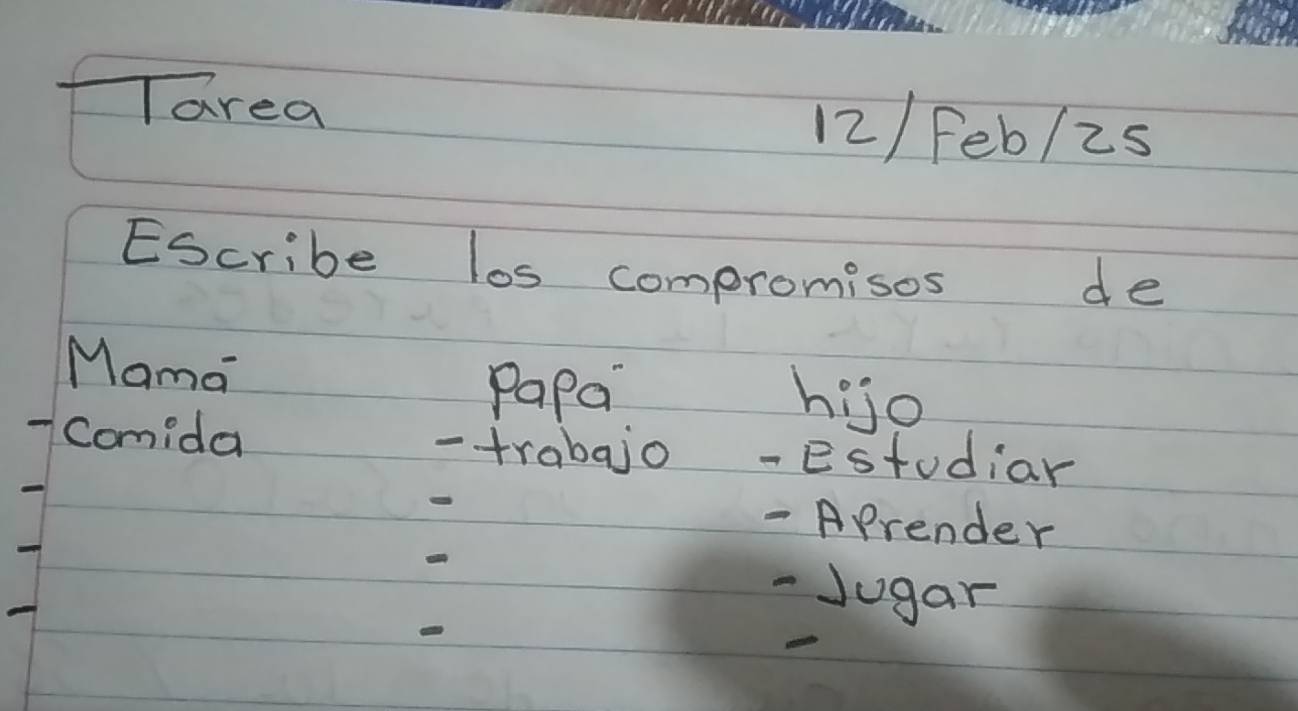 Tarea 12/Feb/25
Escribe los compromisos de
Mamá Papá hijo
-comida -trabajo -Estudiar
- - -Aprender
- - -Jugar
- - -